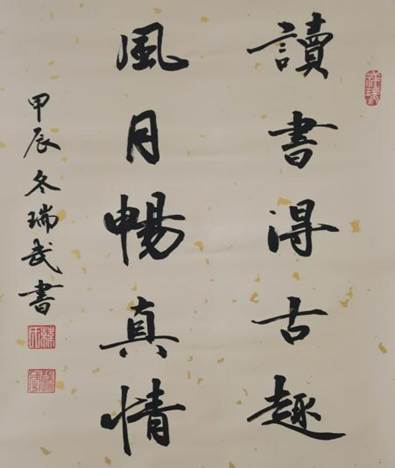 讀書得古趣
風月暢真情
甲辰冬瑞武書